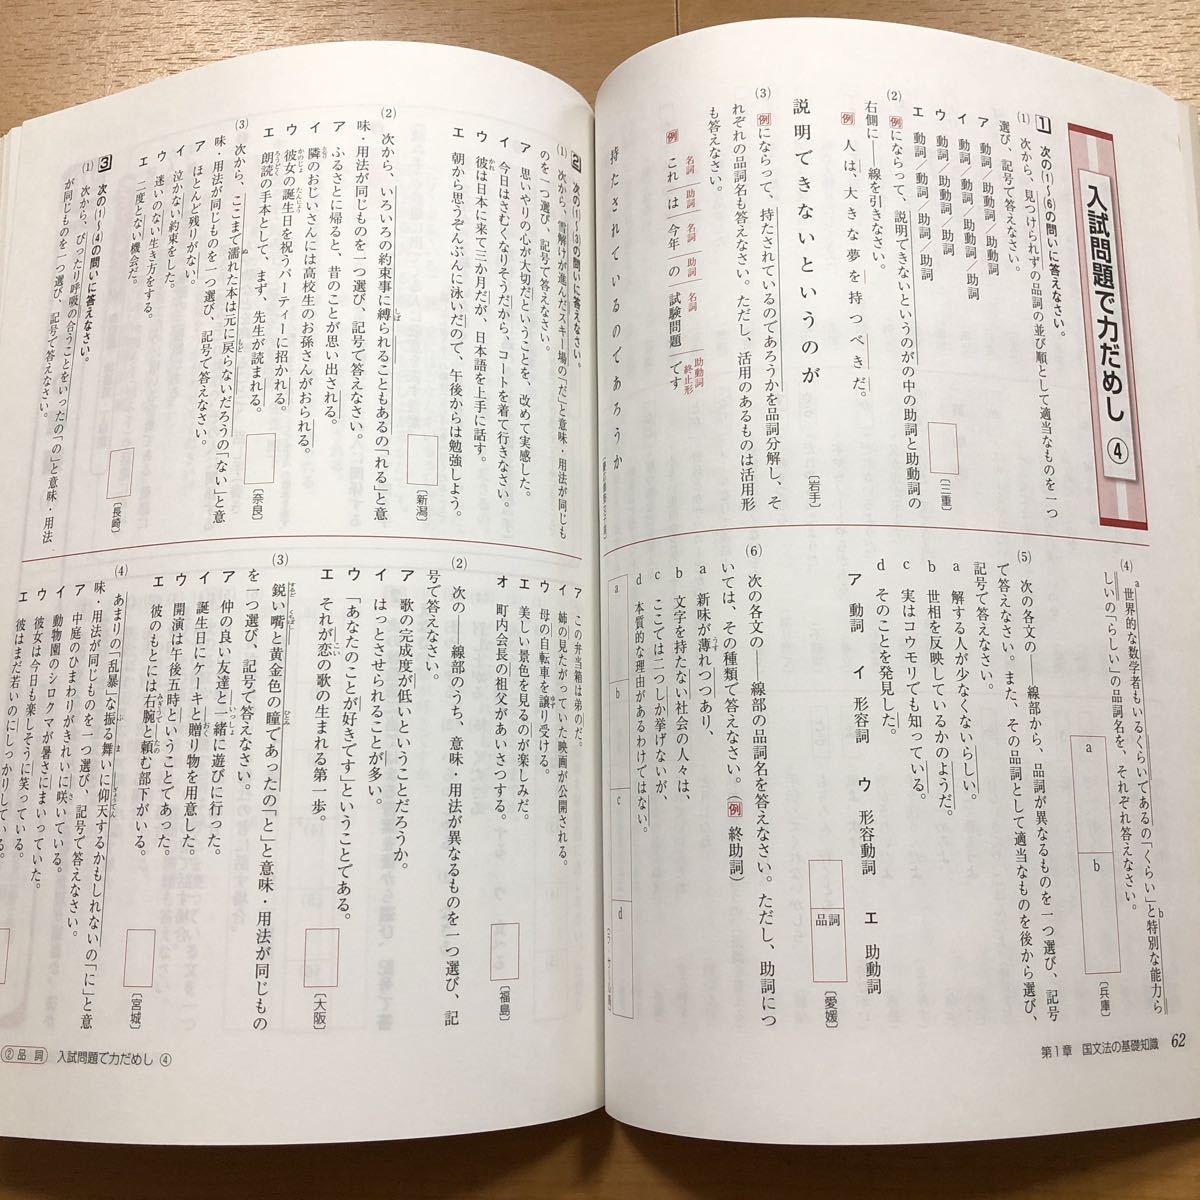 入試問題で力だめし ④
1 次の(1)〜(6)の問いに答えなさい。
(1) 次から、見つけられずの品詞の並び順として適当なものを一つ
選び、記号で答えなさい。
ア 動詞/助動詞/助動詞
イ 動詞/動詞/助動詞/助詞
ウ 動詞/助詞/助動詞
エ 動詞/助動詞/助詞/助詞
〔三重〕
(2) 例にならって、説明できないというのがの中の助詞と助動詞の
右側に――線を引きなさい。
例 人は、大きな夢を持つべきだ。
説明できないというのが
〔岩手〕
(3) 例にならって、持たされているのであろうかを品詞分解し、そ
れぞれの品詞名も答えなさい。ただし、活用のあるものは活用形
も答えなさい。
名詞 助詞 名詞 助詞 名詞 助動詞 終止形
例 これ は 今年 の 試験問題 です
持たされているのであろうか
(4) 世界的な数学者もいるくらいであるの「くらい」と特別な能力ら
a
b
しいの「らしい」の品詞名を、それぞれ答えなさい。
a
b
〔兵庫〕
(5) 次の各文の――線部から、品詞が異なるものを一つ選び、記号
で答えなさい。また、その品詞として適当なものを後から選び、
記号で答えなさい。
a 解する人が少なくないらしい。
b 世相を反映しているかのようだ。
c 実はコウモリでも知っている。
d そのことを発見した。
ア 動詞 イ 形容詞 ウ 形容動詞 エ 助動詞
品詞
〔愛媛〕
(6) 次の各文の――線部の品詞名を答えなさい。ただし、助詞につ
いては、その種類で答えなさい。(例 終助詞)
a 新味が薄れつつあり、
b 文字を持たない社会の人々は、
c ここでは二つしか挙げないが、
d 本質的な理由があるわけではない。
a
b
c
d
第1章 国文法の基礎知識 62
2 次の(1)〜(3)の問いに答えなさい。
(1) 次から、雪解けが進んだスキー場の「だ」と意味・用法が同じも
のを一つ選び、記号で答えなさい。
ア 思いやりの心が大切だということを、改めて実感した。
イ 今日はさむくなりそうだから、コートを着て行きなさい。
ウ 彼は日本に来て三か月だが、日本語を上手に話す。
エ 朝から思うぞんぶんに泳いだので、午後からは勉強しよう。
〔新潟〕
(2) 次から、いろいろの約束事に縛られることもあるの「れる」と意
味・用法が同じものを一つ選び、記号で答えなさい。
ア ふるさとに帰ると、昔のことが思い出される。
イ 隣のおじいさんには高校生のお孫さんがおられる。
ウ 彼女の誕生日を祝うパーティーに招かれる。
エ 朗読の手本として、まず、先生が読まれる。
〔奈良〕
(3) 次から、ここまで濡れた本は元に戻らないだろうの「ない」と意
味・用法が同じものを一つ選び、記号で答えなさい。
ア ほとんど残りがない。
イ 泣かない約束をした。
ウ 迷いのない生き方をする。
エ 二度とない機会だ。
〔長崎〕
3 次の(1)〜(4)の問いに答えなさい。
(1) 次から、ぴったり呼吸の合うことをいったの「の」と意味・用法
が同じものを一つ選び、記号で答えなさい。
ア この弁当箱は弟のだ。
イ 姉の見たがっていた映画が公開される。
ウ 母の自転車を譲り受ける。
エ 美しい景色を見るのが楽しみだ。
オ 町内会長の祖父があいさつする。
〔福島〕
(2) 次の――線部のうち、意味・用法が異なるものを一つ選び、記
号で答えなさい。
ア 歌の完成度が低いということだろうか。
イ はっとさせられることが多い。
ウ 「あなたのことが好きです」ということである。
エ それが恋の歌の生まれる第一歩。
〔大阪〕
(3) 鋭い嘴と黄金色の瞳であったの「と」と意味・用法が同じもの
を一つ選び、記号で答えなさい。
ア 仲の良い友達と一緒に遊びに行った。
イ 誕生日にケーキと贈り物を用意した。
ウ 開演は午後五時ということであった。
エ 彼のもとには右腕と頼む部下がいる。
〔宮城〕
(4) あまりの「乱暴」な振る舞いに仰天するかもしれないの「に」と意
味・用法が同じものを一つ選び、記号で答えなさい。
ア 中庭のひまわりがきれいに咲いている。
イ 動物園のシロクマが暑さにまいっていた。
ウ 彼女は今日も楽しそうに笑っている。
エ 彼はまだ若いのにしっかりしている。
②品詞 入試問題で力だめし ④